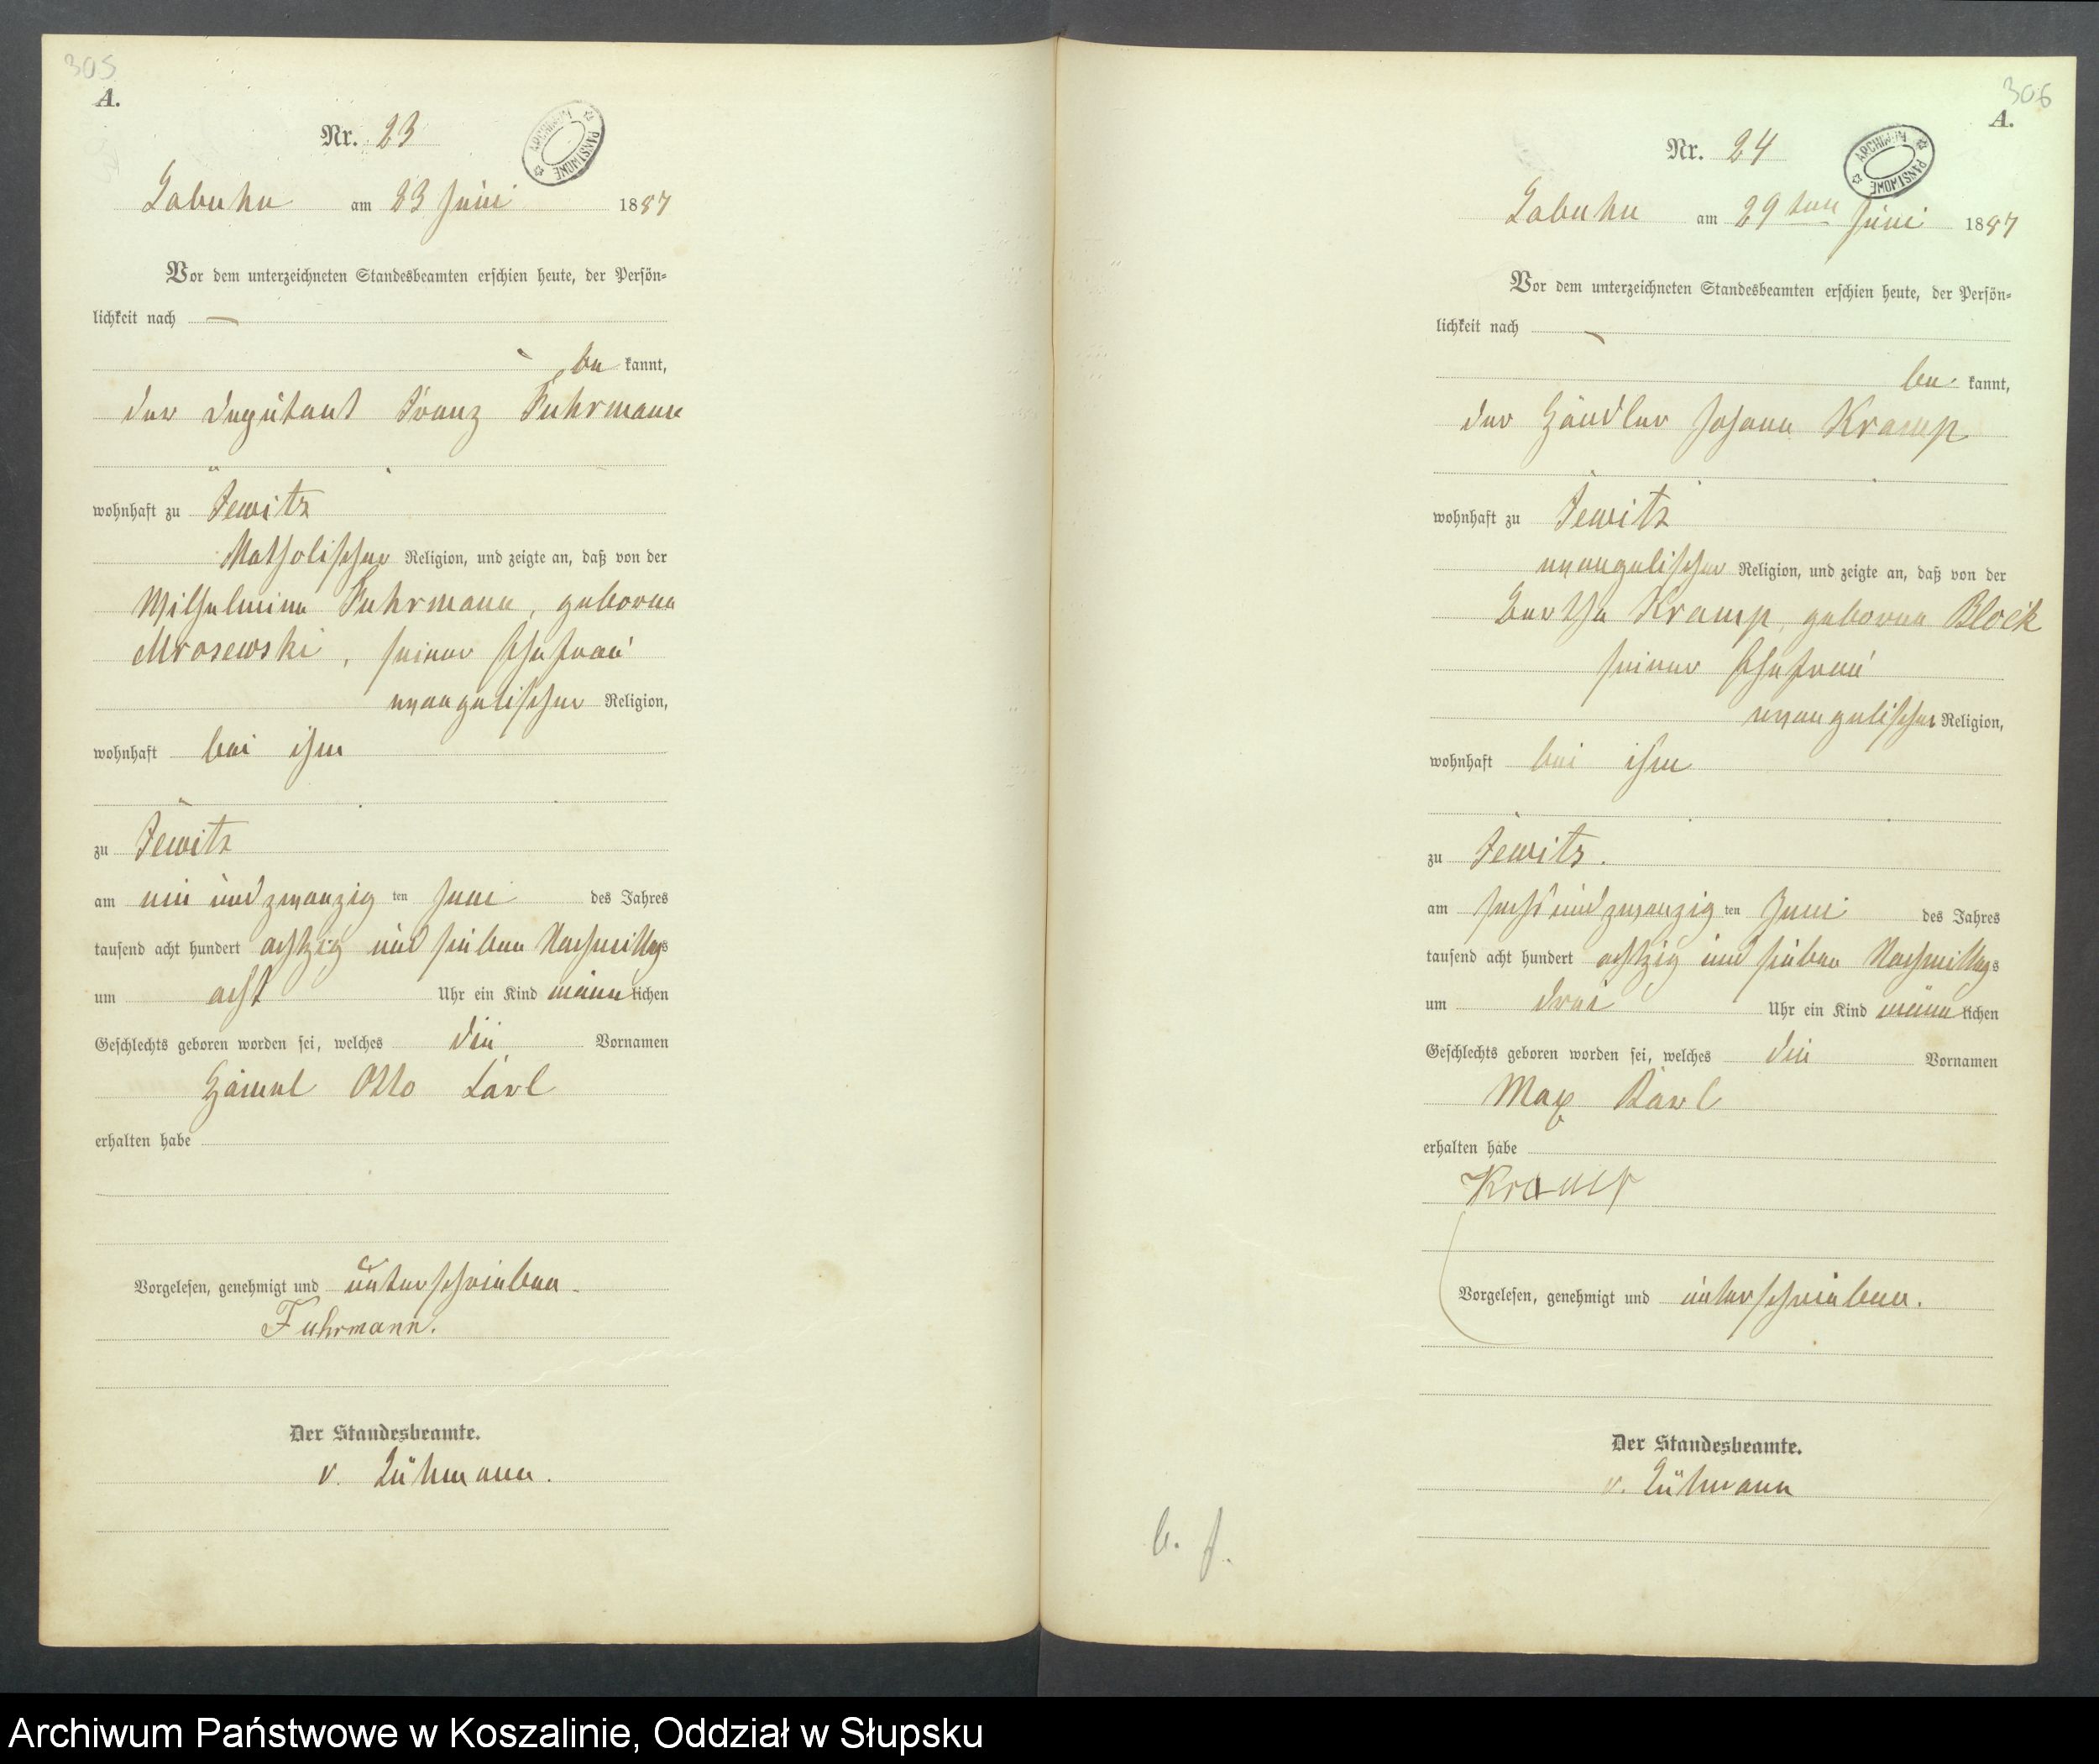 305
A.
Nr. 23
ARCHIWUM PAŃSTWOWE
Labuhn am 23 Juni 1887
Vor dem unterzeichneten Standesbeamten erschien heute, der Persön-
lichkeit nach —
be kannt,
der Deputant Franz Fuhrmann
wohnhaft zu Jewitz
Katholischer Religion, und zeigte an, daß von der
Wilhelmine Fuhrmann, geborne
Mrosewski, seiner Ehefrau
evangelischer Religion,
wohnhaft bei ihm
zu Jewitz
am ein und zwanzig ten Juni des Jahres
tausend acht hundert achtzig und sieben Nachmittags
um acht Uhr ein Kind männlichen
Geschlechts geboren worden sei, welches die Vornamen
Otto Carl
erhalten habe
Vorgelesen, genehmigt und unterschrieben.
Fuhrmann.
Der Standesbeamte.
v. Lühmann.
306
A.
Nr. 24
ARCHIWUM PAŃSTWOWE
Labuhn am 29 ten Juni 1887
Vor dem unterzeichneten Standesbeamten erschien heute, der Persön-
lichkeit nach —
be kannt,
der Händler Johann Kramp
wohnhaft zu Jewitz
evangelischer Religion, und zeigte an, daß von der
Bertha Kramp, geborne Block
seiner Ehefrau
evangelischer Religion,
wohnhaft bei ihm
zu Jewitz.
am sechs und zwanzig ten Juni des Jahres
tausend acht hundert achtzig und sieben Nachmittags
um drei Uhr ein Kind männlichen
Geschlechts geboren worden sei, welches die Vornamen
Max Karl
erhalten habe
Kramp
Vorgelesen, genehmigt und unterschrieben.
Der Standesbeamte.
v. Lühmann
Archiwum Państwowe w Koszalinie, Oddział w Słupsku